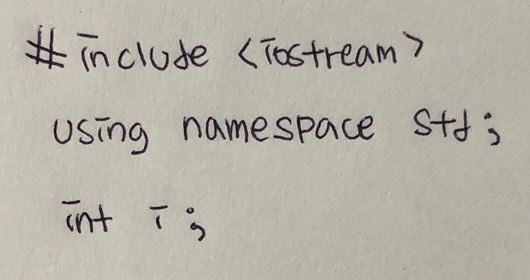 #include <iostream>
using namespace std;
int i;